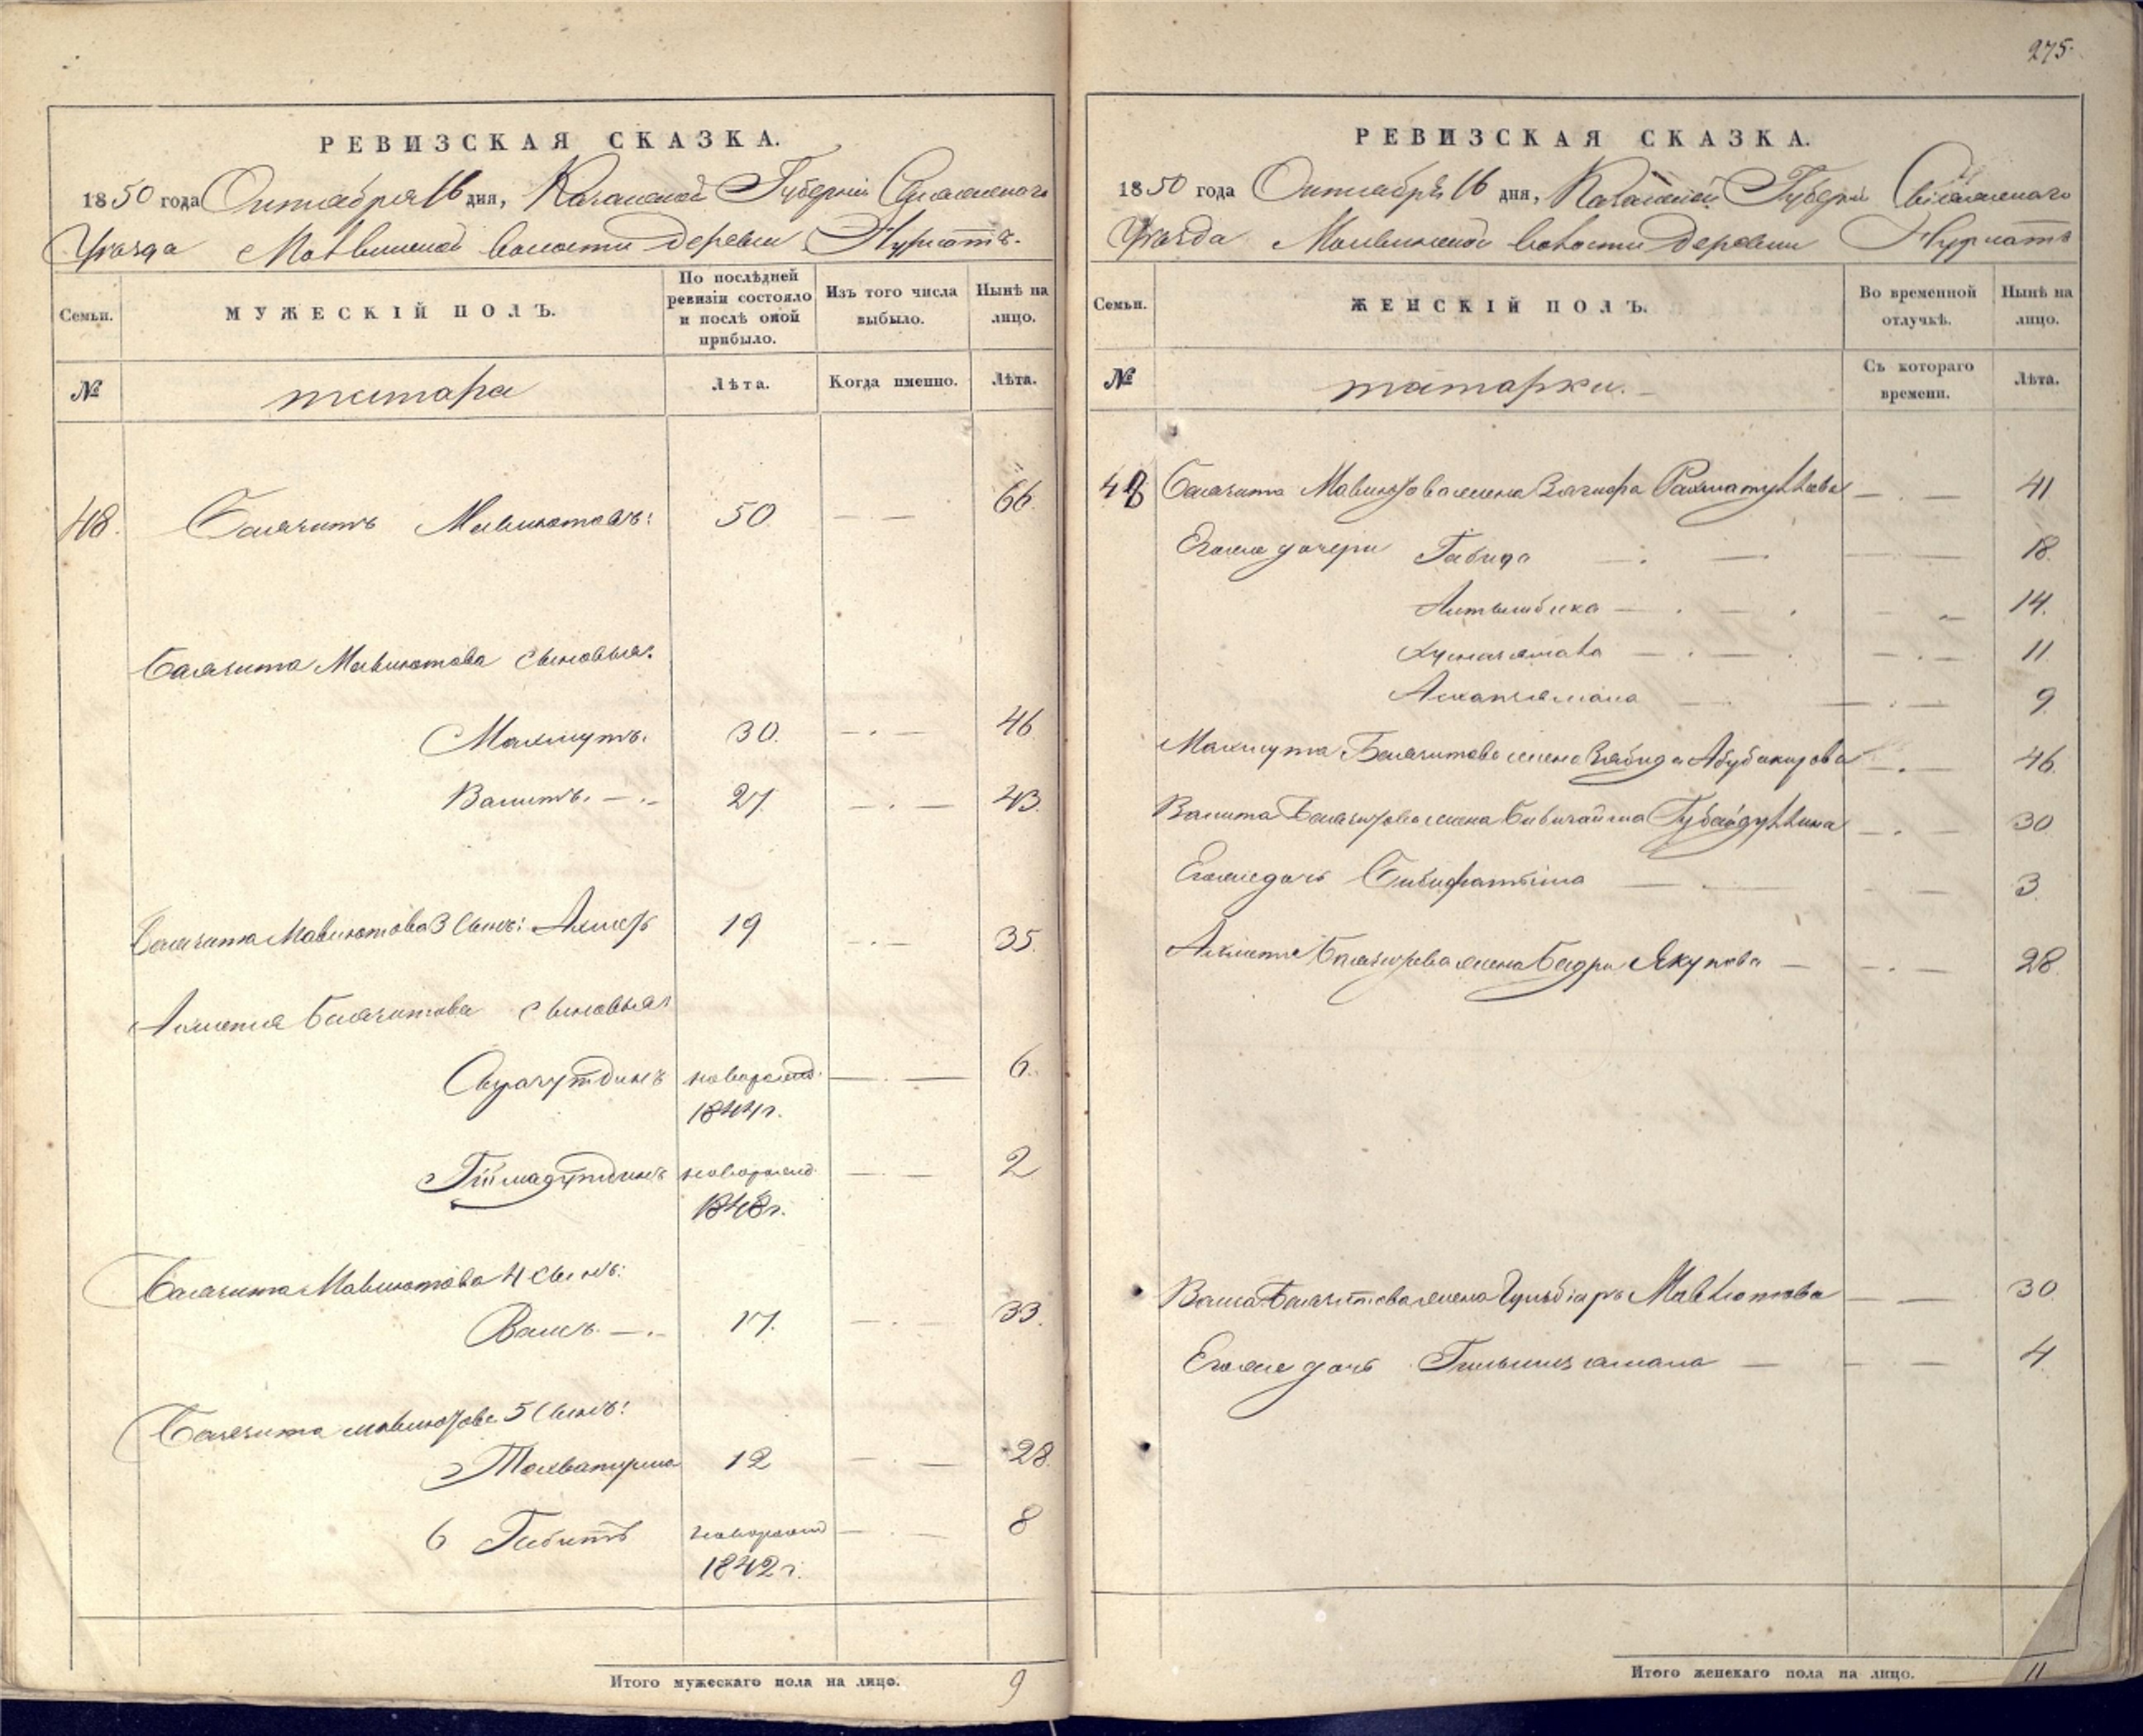 275.
РЕВИЗСКАЯ СКАЗКА.
1850 года Октября 16 дня, Казанской Губерніи
Уезда Молвинской волости деревни Нурлатъ.
Семьи.
МУЖЕСКІЙ ПОЛЪ.
По послѣдней ревизіи состояло и послѣ оной прибыло.
Изъ того числа выбыло.
Нынѣ на лицо.
№
татара
Лѣта.
Когда именно.
Лѣта.
48. Баязитъ Мавлютовъ: 50 66.
Баязита Мавлютова сыновья:
Махмутъ. 30. 46
Валитъ. 27 43
Баязита Мавлютова 3 сынъ: 19 35.
Ахметя Баязитова сыновья:
Сиразутдинъ новорожд. 6.
1844 г.
новорожд. 2
1848 г.
Баязита Мавлютова 4 сынъ:
Вали 17. 33.
Баязита Мавлютова 5 сынъ:
12 28.
6 Гибитъ новорожд 8
1842 г.
Итого мужескаго пола на лицо. 9
РЕВИЗСКАЯ СКАЗКА.
1850 года Октября 16 дня, Казанской Губерніи
Уезда Молвинской волости деревни Нурлатъ
Семьи.
ЖЕНСКІЙ ПОЛЪ.
Во временной отлучкѣ.
Нынѣ на лицо.
№
татарки.
Съ котораго времени.
Лѣта.
48 Баязита Мавлютова жена Рахматуллова 41
Егоже дочери Габида 18.
14.
11
9
Махмута Баязитова жена Абубакирова 46.
Валита Баязитова жена Губайдуллина 30
Егоже дочь Бибифатыма 3
Ахметя Баязитова жена Бадри Якупова 28.
Баязитова жена Гульбіаръ Мавлютова 30
Егоже дочь 4
Итого женскаго пола на лицо. 11